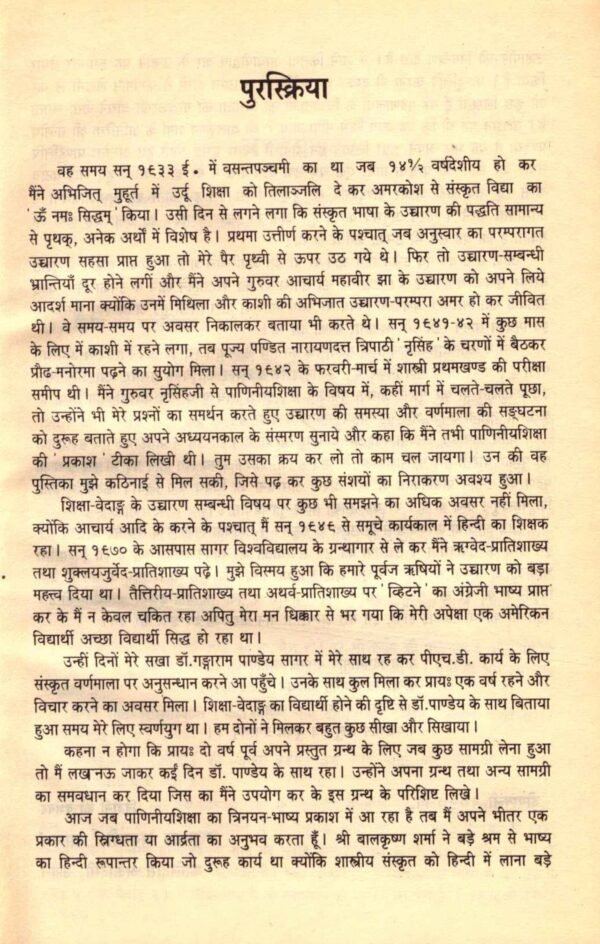 पुरस्क्रिया
वह समय सन् १९३३ ई. में वसन्तपञ्चमी का था जब १४½ वर्षदेशीय हो कर
मैंने अभिजित् मुहूर्त में उर्दू शिक्षा को तिलाञ्जलि दे कर अमरकोश से संस्कृत विद्या का
'ऊँ नमः सिद्धम्' किया। उसी दिन से लगने लगा कि संस्कृत भाषा के उच्चारण की पद्धति सामान्य
से पृथक्, अनेक अर्थों में विशेष है। प्रथमा उत्तीर्ण करने के पश्चात् जब अनुस्वार का परम्परागत
उच्चारण सहसा प्राप्त हुआ तो मेरे पैर पृथ्वी से ऊपर उठ गये थे। फिर तो उच्चारण-सम्बन्धी
भ्रान्तियाँ दूर होने लगीं और मैंने अपने गुरुवर आचार्य महावीर झा के उच्चारण को अपने लिये
आदर्श माना क्योंकि उनमें मिथिला और काशी की अभिजात उच्चारण-परम्परा अमर हो कर जीवित
थी। वे समय-समय पर अवसर निकालकर बताया भी करते थे। सन् १९४१-४२ में कुछ मास
के लिए में काशी में रहने लगा, तब पूज्य पण्डित नारायणदत्त त्रिपाठी 'नृसिंह' के चरणों में बैठकर
प्रौढ-मनोरमा पढ़ने का सुयोग मिला। सन् १९४२ के फरवरी-मार्च में शास्त्री प्रथमखण्ड की परीक्षा
समीप थी। मैंने गुरुवर नृसिंहजी से पाणिनीयशिक्षा के विषय में, कहीं मार्ग में चलते-चलते पूछा,
तो उन्होंने भी मेरे प्रश्नों का समर्थन करते हुए उच्चारण की समस्या और वर्णमाला की सङ्घटना
को दुरूह बताते हुए अपने अध्ययनकाल के संस्मरण सुनाये और कहा कि मैंने तभी पाणिनीयशिक्षा
की 'प्रकाश' टीका लिखी थी। तुम उसका क्रय कर लो तो काम चल जायगा। उन की वह
पुस्तिका मुझे कठिनाई से मिल सकी, जिसे पढ़ कर कुछ संशयों का निराकरण अवश्य हुआ।
शिक्षा-वेदाङ्ग के उच्चारण सम्बन्धी विषय पर कुछ भी समझने का अधिक अवसर नहीं मिला,
क्योंकि आचार्य आदि के करने के पश्चात् मैं सन् १९४९ से समूचे कार्यकाल में हिन्दी का शिक्षक
रहा। सन् १९७० के आसपास सागर विश्वविद्यालय के ग्रन्थागार से ले कर मैंने ऋग्वेद-प्रातिशाख्य
तथा शुक्लयजुर्वेद-प्रातिशाख्य पढ़े। मुझे विस्मय हुआ कि हमारे पूर्वज ऋषियों ने उच्चारण को बड़ा
महत्त्व दिया था। तैत्तिरीय-प्रातिशाख्य तथा अथर्व-प्रातिशाख्य पर 'व्हिटने' का अंग्रेजी भाष्य प्राप्त
कर के मैं न केवल चकित रहा अपितु मेरा मन धिक्कार से भर गया कि मेरी अपेक्षा एक अमेरिकन
विद्यार्थी अच्छा विद्यार्थी सिद्ध हो रहा था।
उन्हीं दिनों मेरे सखा डॉ.गङ्गाराम पाण्डेय सागर में मेरे साथ रह कर पीएच.डी. कार्य के लिए
संस्कृत वर्णमाला पर अनुसन्धान करने आ पहुँचे। उनके साथ कुल मिला कर प्रायः एक वर्ष रहने और
विचार करने का अवसर मिला। शिक्षा-वेदाङ्ग का विद्यार्थी होने की दृष्टि से डॉ.पाण्डेय के साथ बिताया
हुआ समय मेरे लिए स्वर्णयुग था। हम दोनों ने मिलकर बहुत कुछ सीखा और सिखाया।
कहना न होगा कि प्रायः दो वर्ष पूर्व अपने प्रस्तुत ग्रन्थ के लिए जब कुछ सामग्री लेना हुआ
तो मैं लखनऊ जाकर कईं दिन डॉ. पाण्डेय के साथ रहा। उन्होंने अपना ग्रन्थ तथा अन्य सामग्री
का समवधान कर दिया जिस का मैंने उपयोग कर के इस ग्रन्थ के परिशिष्ट लिखे।
आज जब पाणिनीयशिक्षा का त्रिनयन-भाष्य प्रकाश में आ रहा है तब मैं अपने भीतर एक
प्रकार की स्निग्धता या आर्द्रता का अनुभव करता हूँ। श्री बालकृष्ण शर्मा ने बड़े श्रम से भाष्य
का हिन्दी रूपान्तर किया जो दुरूह कार्य था क्योंकि शास्त्रीय संस्कृत को हिन्दी में लाना बड़े